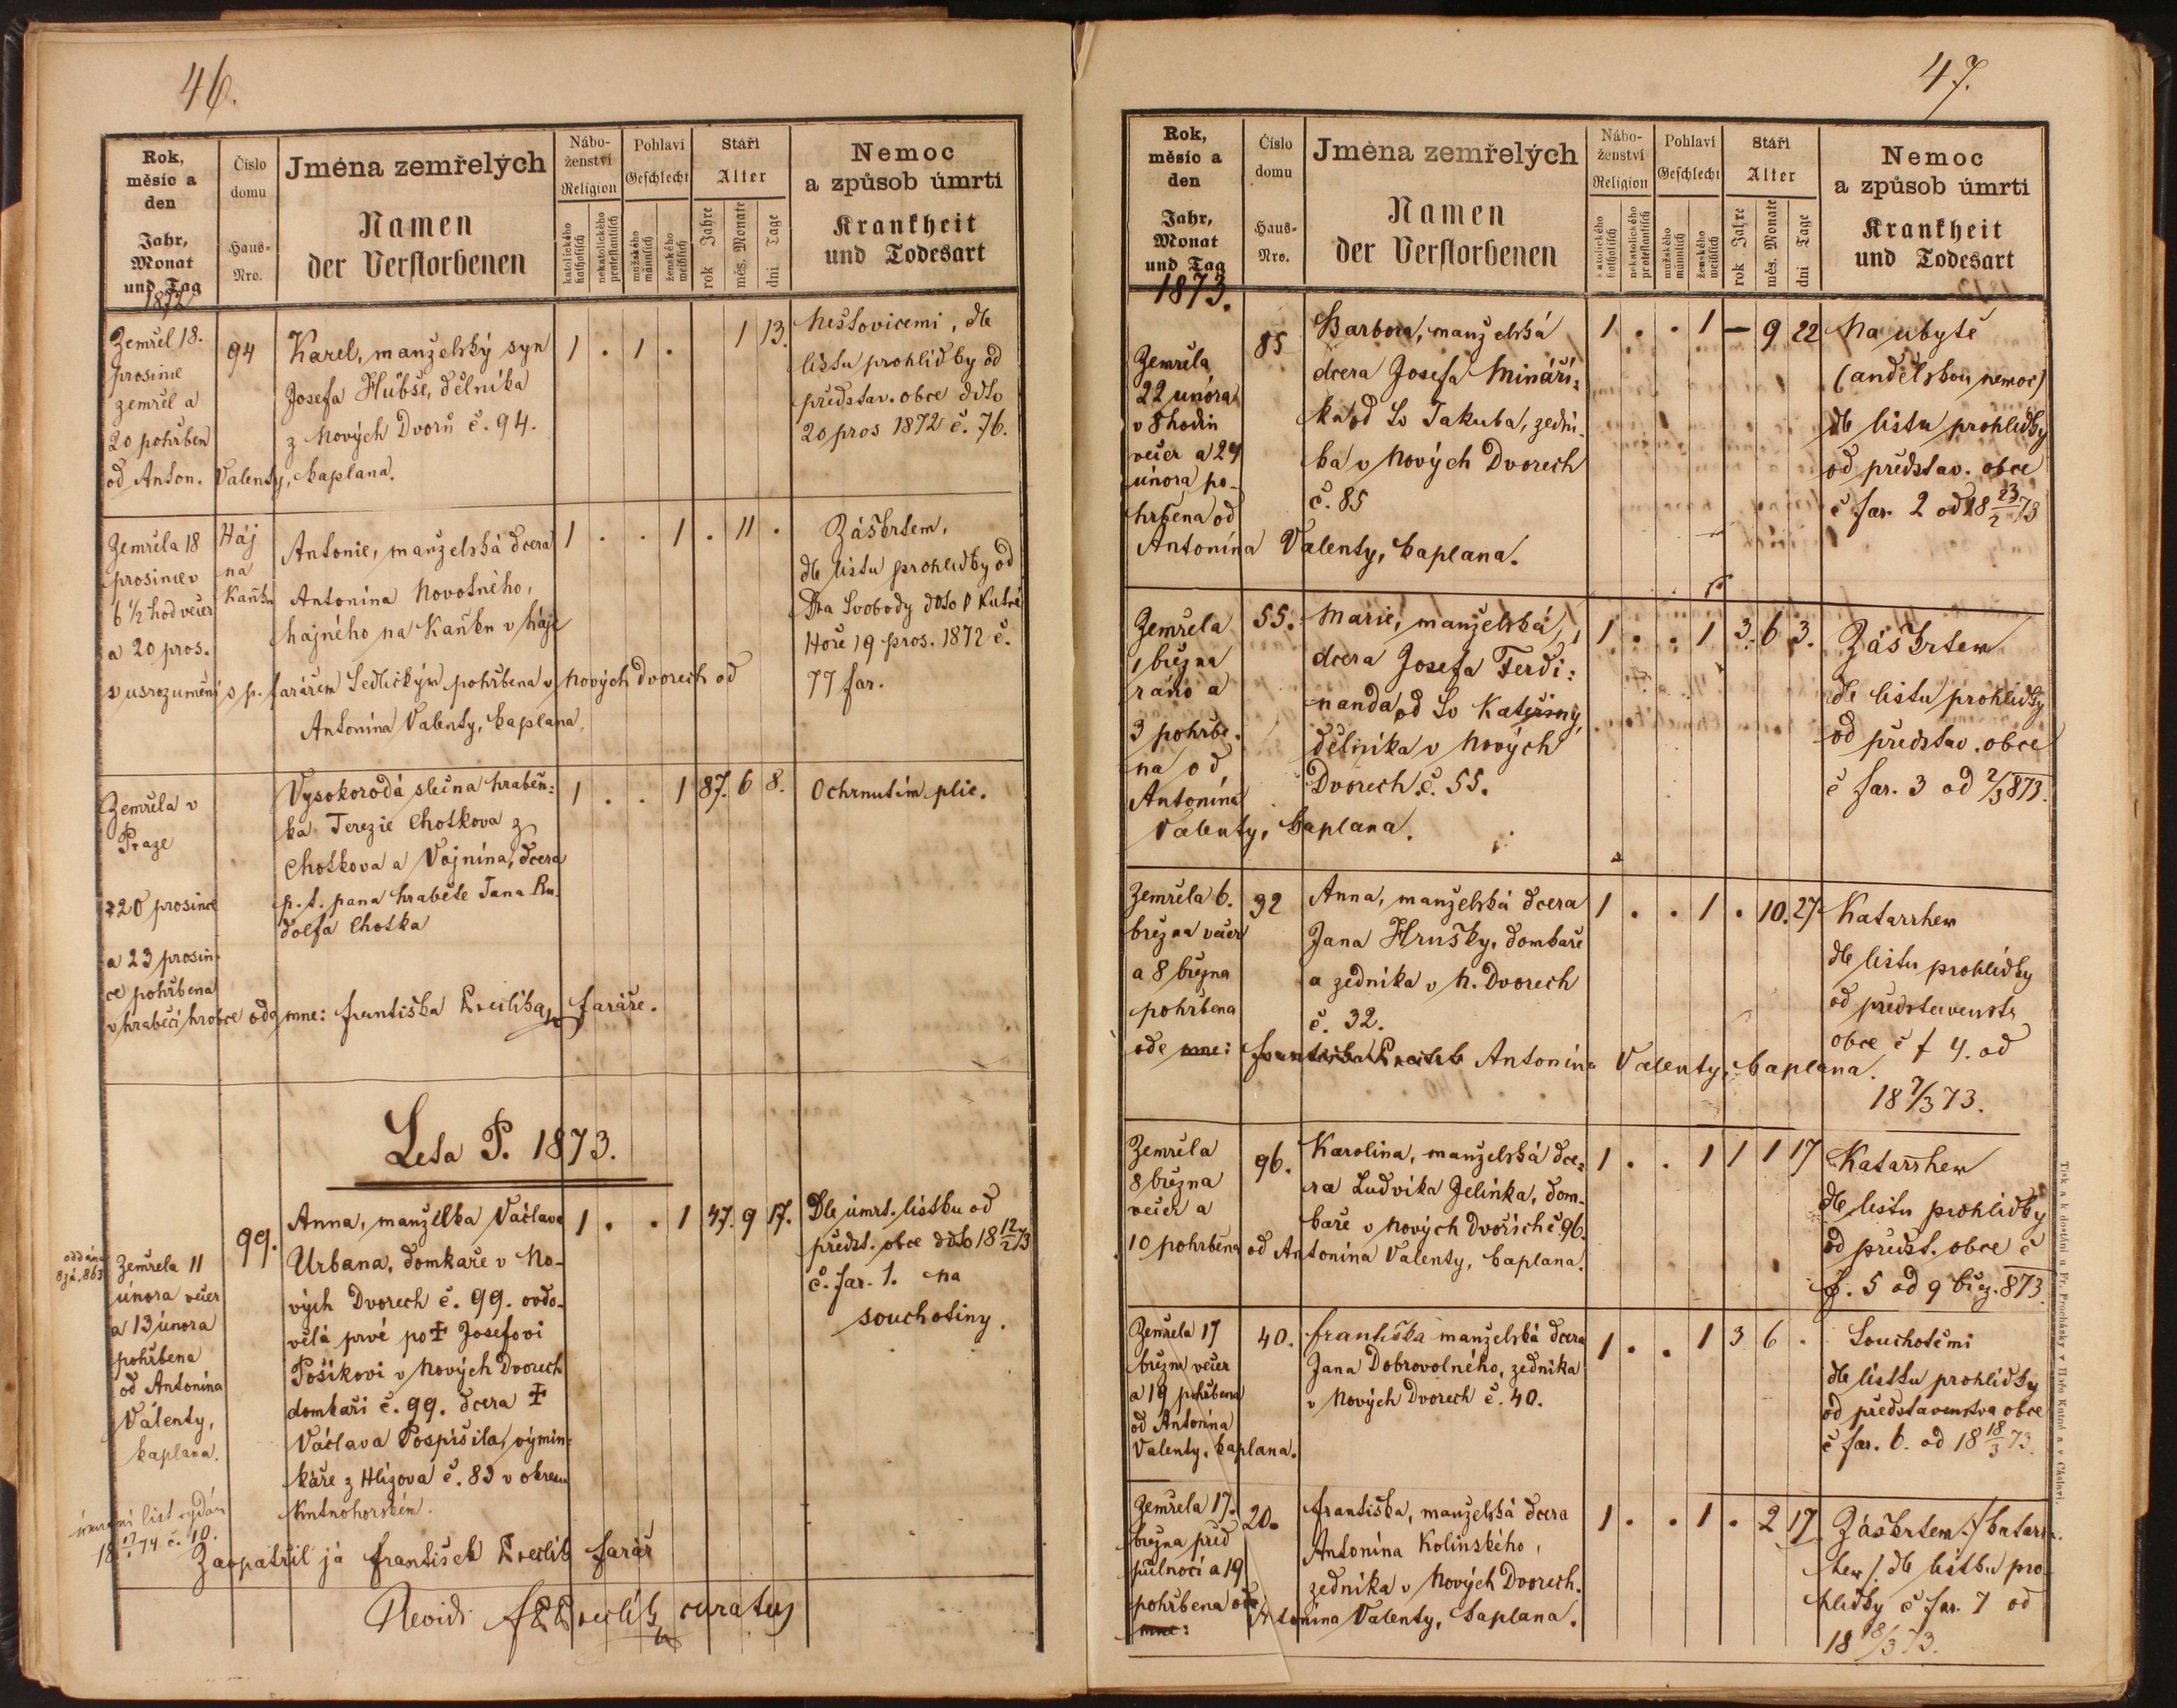 46.
Rok, měsíc a den
Jahr, Monat und Tag
1872
Číslo domu
Haus-Nro.
Jména zemřelých
Namen der Verstorbenen
Náboženství
Religion
katolického katholisch
nekatolického protestantisch
Pohlaví
Geschlecht
mužského männlich
ženského weiblich
Stáří
Alter
rok Jahre
měs. Monate
dni Tage
Nemoc a způsob úmrtí
Krankheit und Todesart
Zemřel 18.
prosince
zemřel a
20 pohřben
od Anton. Valenty, kaplana.
94
Karel, manželský syn
Josefa Hübše, dělníka
z Nových Dvorů č. 94.
1 . 1 . 1 13.
Neštovicemi, dle
lístku prohlídby od
představ. obce ddto
20 pros 1872 č. 76.
Zemřela 18
prosince v
6 1/2 hod večer
a 20 pros.
Háj
na
Kaňku
Antonie, manželská dcera
Antonína Novotného,
hajného na Kaňku v háji
s usrozumění s p. farářem Sedlickým pohřbena v Nových dvorech od
Antonína Valenty, kaplana.
1 . . 1 . 11 .
Záškrtem,
dle listu prohlídby od
Dra Svobody ddto v Kutné
Hoře 19 pros. 1872 č.
77 far.
Zemřela v
Praze
20 prosince
a 23 prosin-
ce pohřbena
v hraběcí hrobce ode mne: Františka faráře.
Vysokorodá slečna hraběn:
ka Terezie Chotkova z
Chotkova a Vojnína, dcera
p. t. pana hraběte Jana Ru-
dolfa Chotka
1 . . 1 87. 6 8.
Ochrnutím plic.
Leta P. 1873.
oddána
8 zá. 863
Zemřela 11
února večer
a 13 února
pohřbena
od Antonína
Valenty,
kaplana.
99.
Anna, manželka Václava
Urbana, domkaře v No-
vých Dvorech č. 99. ovdo-
vělá prvé po ‡ Josefovi
Pošíkovi v Nových Dvorech
domkaři č. 99. dcera ‡
Václava Pospíšila, výmin-
káře z Hlízova č. 83 v okresu
Kutnohorském.
1 . . 1 47. 9 17.
Dle úmrt. lístku od
předst. obce ddto 18 12/2 73
č. far. 1. na
souchotiny.
list vydán
74 č. 10.
Zaopatřil já František farář
Revidi curatus
47.
Rok, měsíc a den
Jahr, Monat und Tag
1873.
Číslo domu
Haus-Nro.
Jména zemřelých
Namen der Verstorbenen
Náboženství
Religion
katolického katholisch
nekatolického protestantisch
Pohlaví
Geschlecht
mužského männlich
ženského weiblich
Stáří
Alter
rok Jahre
měs. Monate
dni Tage
Nemoc a způsob úmrtí
Krankheit und Todesart
Zemřela
22 února
v 8 hodin
večer a 24
února po-
hřbena od
Antonína Valenty, kaplana.
85
Barbora, manželská
dcera Josefa Minaří:
ka od Sv Jakuba, zední-
ka v Nových Dvorech
č. 85
1 . . 1 — 9 22
Na ubytě
(andělskou nemoc)
dle listu prohlídky
od představ. obce
č far. 2 od 18 23/2 73
Zemřela
1 března
ráno a
3 pohřbe-
na od
Antonína
Valenty, kaplana.
55.
Marie, manželská,
dcera Josefa Ferdi:
nanda od Sv Kateřiny,
dělníka v Nových
Dvorech č. 55.
1 . . 1 3. 6 3.
Záškrtem
dle listu prohlídky
od představ. obce
č far. 3 od 2/3 873.
Zemřela 6.
března večer
a 8 března
pohřbena
ode mne: Františka Antonína Valenty, kaplana.
32
Anna, manželská dcera
Jana Hrušky, domkaře
a zedníka v N. Dvorech
č. 32.
1 . . 1 . 10. 27
Katarrhem
dle listu prohlídky
od představenstv
obce č f 4. od
18 7/3 73.
Zemřela
8 března
večer a
10 pohřbena od Antonína Valenty, kaplana.
96.
Karolina, manželská dce:
ra Ludvíka Jelínka, dom-
kaře v Nových Dvořích č 96.
1 . . 1 1 1 17
Katarrhem
dle listu prohlídky
od předst. obce č
f. 5 od 9 břez. 873.
Zemřela 17
března večer
a 19 pohřbena
od Antonína
Valenty, kaplana.
40.
Františka manželská dcera
Jana Dobrovolného, zedníka
v Nových Dvorech č. 40.
1 . . 1 3 6 .
Souchotěmi
dle lístku prohlídky
od představenstva obce
č far. 6. od 18 18/3 73.
Zemřela 17.
března před
půlnocí a 19
pohřbena od
mne: Antonína Valenty, kaplana.
20.
Františka, manželská dcera
Antonína Kolínského,
zedníka v Nových Dvorech.
1 . . 1 . 2 17
Záškrtem / katarr-
hem / dle lístku pro-
hlídky č far. 7 od
18 18/3 73.
Tisk a k dostání u Fr. Procházky v Hoře Kutné a v Čáslavi.